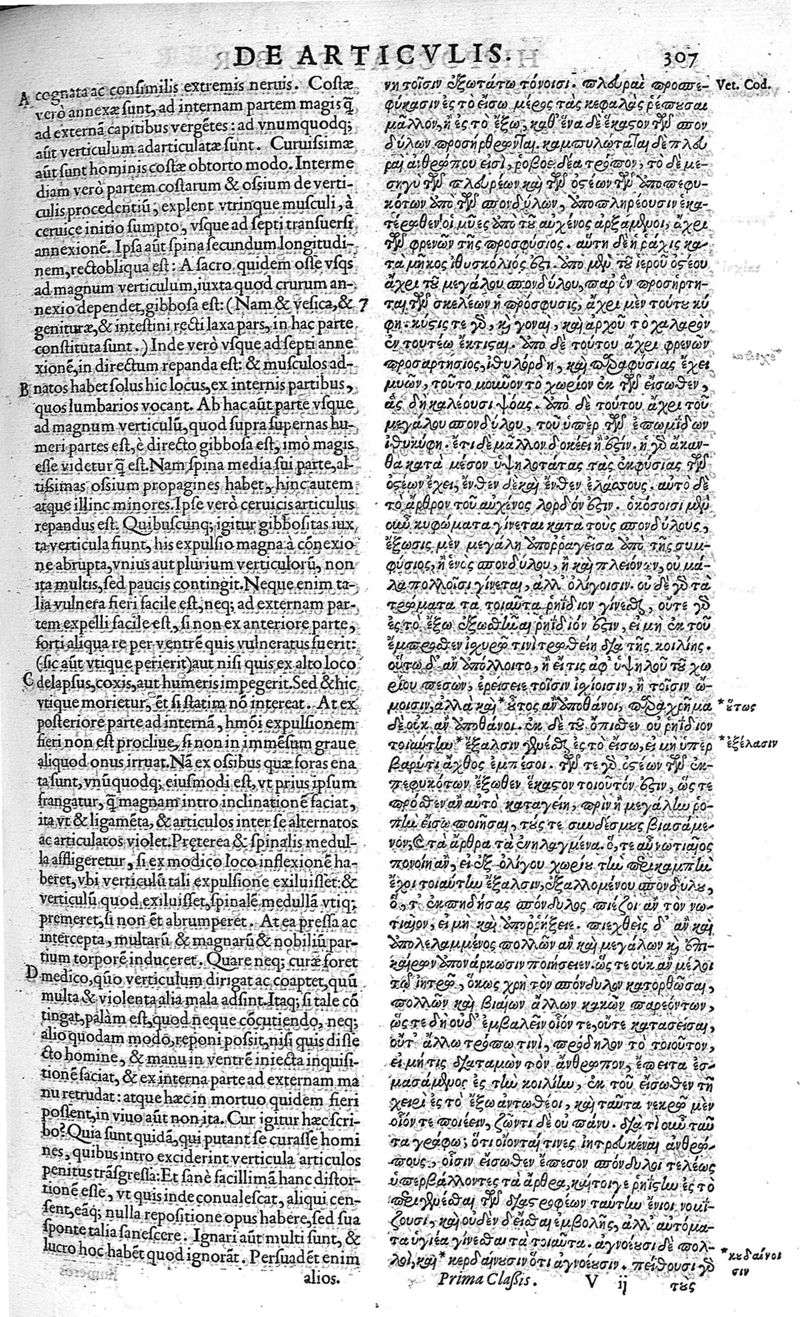 DE ARTICVLIS. 307
A cognata ac consimilis extremis neruis. Costæ
verò annexæ sunt, ad internam partem magis q̃
ad externã capitibus vergẽtes: ad vnumquodq;
aũt verticulum adarticulatæ sunt. Curuissimæ
aũt sunt hominis costæ obtorto modo. Interme
diam verò partem costarum & ossium de verti-
culis procedentiũ, explent vtrinque musculi, à
ceruice initio sumpto, vsque ad septi transuersi
annexionẽ. Ipsa aũt spina secundum longitudi-
nem, rectobliqua est: A sacro quidem osse vsqs
ad magnum verticulum, iuxta quod crurum an-
nexio dependet, gibbosa est: (Nam & vesica, & 7
genituræ, & intestini recti laxa pars, in hac parte
constituta sunt.) Inde verò vsque ad septi anne
xionẽ, in directum repanda est: & musculos ad-
B natos habet solus hic locus, ex internis partibus,
quos lumbarios vocant. Ab hac aũt parte vsque
ad magnum verticulũ, quod supra supernas hu-
meri partes est, è directo gibbosa est, imò magis
esse videtur q̃ est. Nam spina media sui parte, al-
tissimas ossium propagines habet, hinc autem
atque illinc minores. Ipse verò ceruicis articulus
repandus est. Quibuscunq; igitur gibbositas iux
ta verticula fiunt, his expulsio magna à cõnexio
ne abrupta, vnius aut plurium verticulorũ, non
ita multis, sed paucis contingit. Neque enim ta-
lia vulnera fieri facile est, neq; ad externam par-
tem expelli facile est, si non ex anteriore parte,
forti aliqua re per ventrẽ quis vulneratus fuerit:
(sic aũt vtique perierit) aut nisi quis ex alto loco
C delapsus, coxis, aut humeris impegerit. Sed & hic
vtique morietur, et si statim nõ intereat. At ex
posteriore parte ad internã, hmõi expulsionem
fieri non est procliue, si non in immẽsum graue
aliquod onus irruat. Nã ex ossibus quæ foras ena
ta sunt, vnũquodq; eiusmodi est, vt prius ipsum
frangatur, q̃ magnam intro inclinationẽ faciat,
ita vt & ligamẽta, & articulos inter se alternatos
ac articulatos violet. Præterea & spinalis medul-
la affligeretur, si ex modico loco inflexionẽ ha-
beret, vbi verticulũ tali expulsione exiluisset: &
verticulũ quod exiluisset, spinalẽ medullã vtiq;
premeret, si non et abrumperet. At ea pressa ac
intercepta, multarũ & magnarũ & nobiliũ par-
tium torporẽ induceret. Quare neq; curæ foret
D medico, quo verticulum dirigat ac coaptet, quũ
multa & violenta alia mala adsint. Itaq; si tale cõ
tingat, palàm est, quod neque cõcutiendo, neq;
alio quodam modo, reponi possit, nisi quis disse
cto homine, & manu in ventrẽ iniecta inquisi-
tionẽ faciat, & ex interna parte ad externam ma
nu retrudat: atque hæc in mortuo quidem fieri
possent, in viuo aũt non ita. Cur igitur hæc scri-
bo? Quia sunt quidã, qui putant se curasse homi
nes, quibus intro exciderint verticula articulos
penitus trãsgressa: Et sanè facillimã hanc distor-
tionẽ esse, vt quis inde conualescat, aliqui cen-
sent, eãq; nulla repositione opus habere, sed sua
sponte talia sanescere. Ignari aũt multi sunt, &
lucro hoc habẽt quod ignorãt. Persuadẽt enim
alios.
νη τοῖσιν ὀξωτάτω τόνοισι. πλευραὶ προσπε- Vet. Cod.
φύκασιν ἐς τὸ εἴσω μέρος τὰς κεφαλὰς ῥέπουσαι
μᾶλλον, ἢ ἐς τὸ ἔξω, καθ' ἕνα δὲ ἕκαστον τῶν σπον
δύλων προσήρθρωνται. καμπυλώταται δὲ πλευ
ραὶ ἀνθρώπου εἰσὶ, ῥοιβοειδέα τρόπον, τὸ δὲ με-
σηγὺ τῶν πλευρέων καὶ τῶν ὀστέων τῶν ὑποπεφυ-
κότων ὑπὸ τῶν σπονδύλων, ὑποπληρέουσιν ἑκα-
τέρωθεν οἱ μύες ὑπὸ τοῦ αὐχένος ἀρξάμενοι, ἄχρι
τῶν φρενῶν τῆς προσφύσιος. αὐτὴ δὲ ἡ ῥάχις κα-
τὰ μῆκος ἰθυσκόλιός ἐστι. ὑπὸ μὲν τοῦ ἱεροῦ ὀστέου
ἄχρι τοῦ μεγάλου σπονδύλου, παρ' ὃν προσήρτη-
ται τῶν σκελέων ἡ πρόσφυσις, ἄχρι μὲν τούτου κύ
φη. κύστις τε γὰρ, καὶ γοναὶ, καὶ ἀρχοῦ τὸ χαλαρὸν
ἐν τουτέῳ ἔκτισται. ὑπὸ δὲ τούτου ἄχρι φρενῶν
προσαρτήσιος, ἰθυλόρδη, καὶ παραφύσιας ἔχει
μυῶν, τοῦτο μοῦνον τὸ χωρίον ἐκ τῶν εἴσωθεν,
ἃς δὴ καλέουσι ψόας. ὑπὸ δὲ τούτου ἄχρι τοῦ
μεγάλου σπονδύλου, τοῦ ὑπὲρ τῶν ἐπωμίδων
ἰθυκύφη. ἔτι δὲ μᾶλλον δοκέει ἢ ἔστιν. ἡ γὰρ ἄκαν-
θα κατὰ μέσον ὑψηλοτάτας τὰς ἐκφύσιας τῶν
ὀστέων ἔχει, ἔνθεν δὲ καὶ ἔνθεν ἐλάσσους. αὐτὸ δὲ
τὸ ἄρθρον τοῦ αὐχένος λορδόν ἐστιν. ὁκόσοισι μὲν
οὖν κυφώματα γίνεται κατὰ τοὺς σπονδύλους,
ἔξωσις μὲν μεγάλη ὑπορραγεῖσα ὑπὸ τῆς συμ-
φύσιος, ἢ ἑνὸς σπονδύλου, ἢ καὶ πλειόνων, οὐ μά-
λα πολλοῖσι γίνεται, ἀλλ' ὀλίγοισιν. οὐδὲ γὰρ τὰ
τρώματα τὰ τοιαῦτα ῥηΐδιον γίνεσθαι, οὔτε γὰρ
ἐς τὸ ἔξω ἐξωσθῆναι ῥηΐδιόν ἐστιν, εἰ μὴ ἐκ τοῦ
ἔμπροσθεν ἰσχυρῷ τινὶ τρωθείη διὰ τῆς κοιλίης.
οὕτω δ' ἂν ὑπόλλοιτο, ἢ εἴ τις ἀφ' ὑψηλοῦ του χω
ρίου πεσὼν, ἐρείσειε τοῖσιν ἰσχίοισιν, ἢ τοῖσιν ὤ-
μοισιν, ἀλλὰ καὶ *οὗτος ἂν ὑποθάνοι, παραχρῆμα *οὕτως
δὲ οὐκ ἂν ὑποθάνοι. ἐκ δὲ τοῦ ὄπισθεν οὐ ῥηΐδιον
τοιαύτην *ἔξαλσιν γενέσθαι ἐς τὸ εἴσω, εἰ μὴ ὑπέρ *ἐξέλασιν
βαρύ τι ἄχθος ἐμπέσοι. τῶν τε γὰρ ὀστέων τῶν ἐκ-
πεφυκότων ἔξωθεν ἕκαστον τοιοῦτόν ἐστιν, ὥστε
πρόσθεν ἂν αὐτὸ καταγεῖεν, πρὶν ἢ μεγάλην ῥο-
πὴν εἴσω ποιῆσαι, τούς τε συνδέσμους βιασάμε-
νον, καὶ τὰ ἄρθρα τὰ ἐνηλλαγμένα. ὅ, τε αὖ νωτιαῖος
πονοίη ἂν, εἰ ἐξ ὀλίγου χωρίου τὴν περικαμπὴν
ἔχοι τοιαύτην ἔξαλσιν, ἐξαλλομένου σπονδύλου,
ὅ, τ' ἐκπηδήσας σπόνδυλος πιέζοι ἂν τὸν νω-
τιαῖον, εἰ μὴ καὶ ὑπορρήξειε. πιεχθεὶς δ' ἂν καὶ
ὑπολελαμμένος πολλῶν ἂν καὶ μεγάλων καὶ ἐπι-
καίρων ὑπονάρκωσιν ποιήσειεν. ὥστε οὐκ ἂν μέλοι
τῷ ἰητρῷ, ὅκως χρὴ τὸν σπόνδυλον κατορθῶσαι,
πολλῶν καὶ βιαίων ἄλλων κακῶν παρεόντων,
ὥστε δὴ οὐδ' ἐμβαλεῖν οἷόν τε, οὔτε κατασεῖσαι,
οὔτ' ἄλλῳ τρόπῳ τινὶ, πρόδηλον τὸ τοιοῦτον,
εἰ μή τις διαταμὼν τὸν ἄνθρωπον, ἔπειτα ἐσ-
μασάμενος ἐς τὴν κοιλίην, ἐκ τοῦ εἴσωθεν τῇ
χειρὶ ἐς τὸ ἔξω ἀντωθέοι, καὶ ταῦτα νεκρῷ μὲν
οἷόν τε ποιέειν, ζῶντι δὲ οὐ πάνυ. διὰ τί οὖν ταῦ
τα γράφω; ὅτι οἴονταί τινες ἰητρευκέναι ἀνθρώ-
πους, οἷσιν εἴσωθεν ἔπεσον σπόνδυλοι τελέως
ὑπερβάλλοντες τὰ ἄρθρα, καί τοι γε ῥηΐστην ἐς τὸ
περιγενέσθαι τῶν διαστροφέων ταύτην ἔνιοι νομί-
ζουσι, καὶ οὐδὲν δεῖσθαι ἐμβολῆς, ἀλλ' αὐτόμα-
τα ὑγιέα γίνεσθαι τὰ τοιαῦτα. ἀγνοέουσι δὲ πολ-
λοὶ, καὶ *κερδαίνουσιν ὅτι ἀγνοέουσιν. πείθουσι γὰρ *κυδαίνοι
σιν
Prima Classis. V ij τοὺς